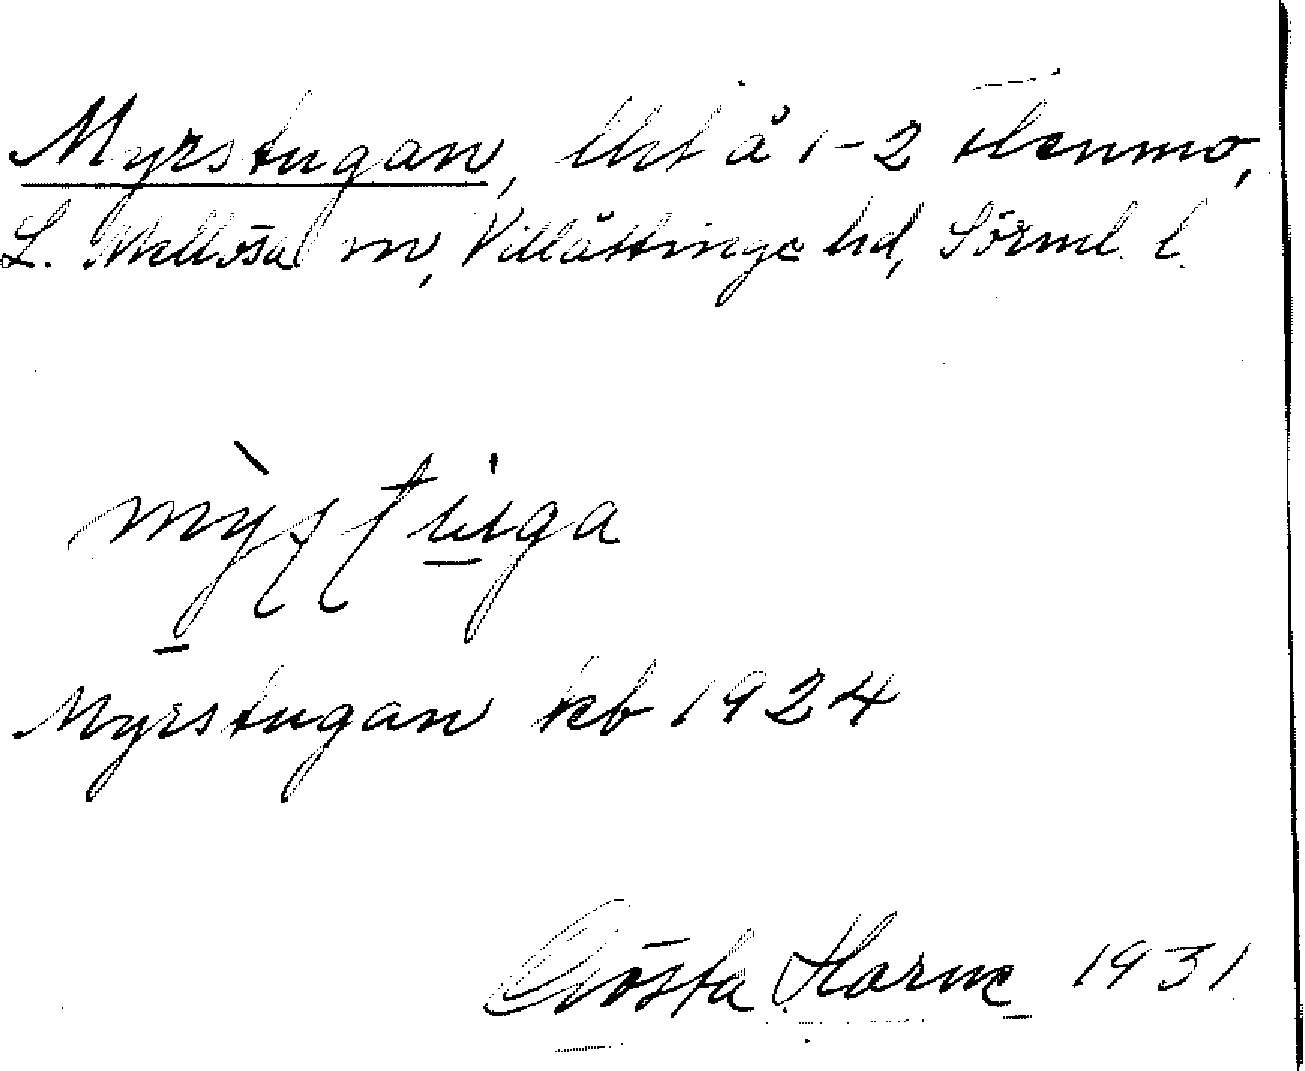 Myrstugan, lht å 1-2 Flenmo,
L. Mellösa sn, Villåttinge hd, Sörml. l.
Myrstugan kb 1924
Gösta Harne 1931